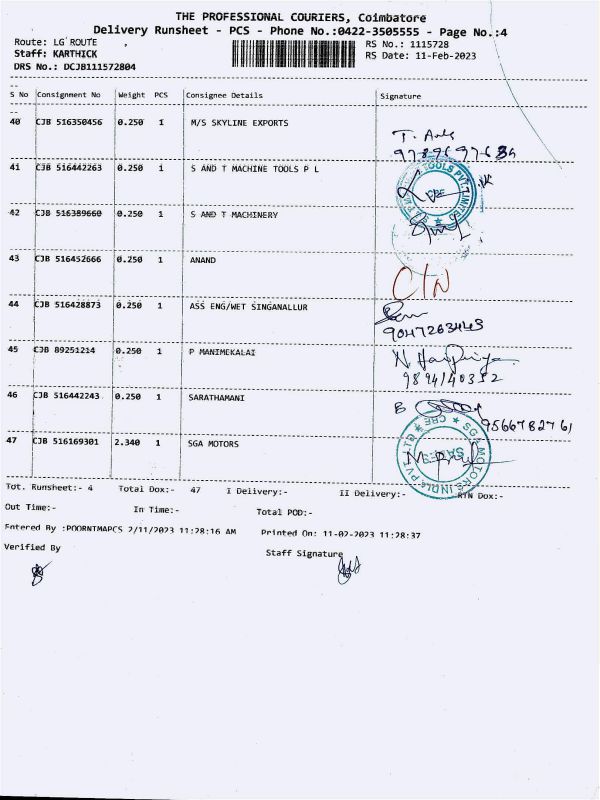 THE PROFESSIONAL COURIERS, Coimbatore
Delivery Runsheet - PCS - Phone No.:0422-3505555 - Page No.:4
Route: LG ROUTE
RS No.: 1115728
Staff: KARTHICK
RS Date: 11-Feb-2023
DRS No.: DCJB111572804
S No Consignment No Weight PCS Consignee Details Signature
40 CJB 516350456 0.250 1 M/S SKYLINE EXPORTS
41 CJB 516442263 0.250 1 S AND T MACHINE TOOLS P L
TOOLS PVT LIMITED
CBE
42 CJB 516389660 0.250 1 S AND T MACHINERY
43 CJB 516452666 0.250 1 ANAND
44 CJB 516428873 0.250 1 ASS ENG/WET SINGANALLUR
9047263445
45 CJB 89251214 0.250 1 P MANIMEKALAI
9894140352
46 CJB 516442243 0.250 1 SARATHAMANI
B
9566782761
47 CJB 516169301 2.340 1 SGA MOTORS
SGA MOTORS INDIA PVT LTD
CBE
SALES
Tot. Runsheet:- 4 Total Dox:- 47 I Delivery:- II Delivery:- RTN Dox:-
Out Time:- In Time:- Total POD:-
Entered By :POORNIMAPCS 2/11/2023 11:28:16 AM Printed On: 11-02-2023 11:28:37
Verified By Staff Signature